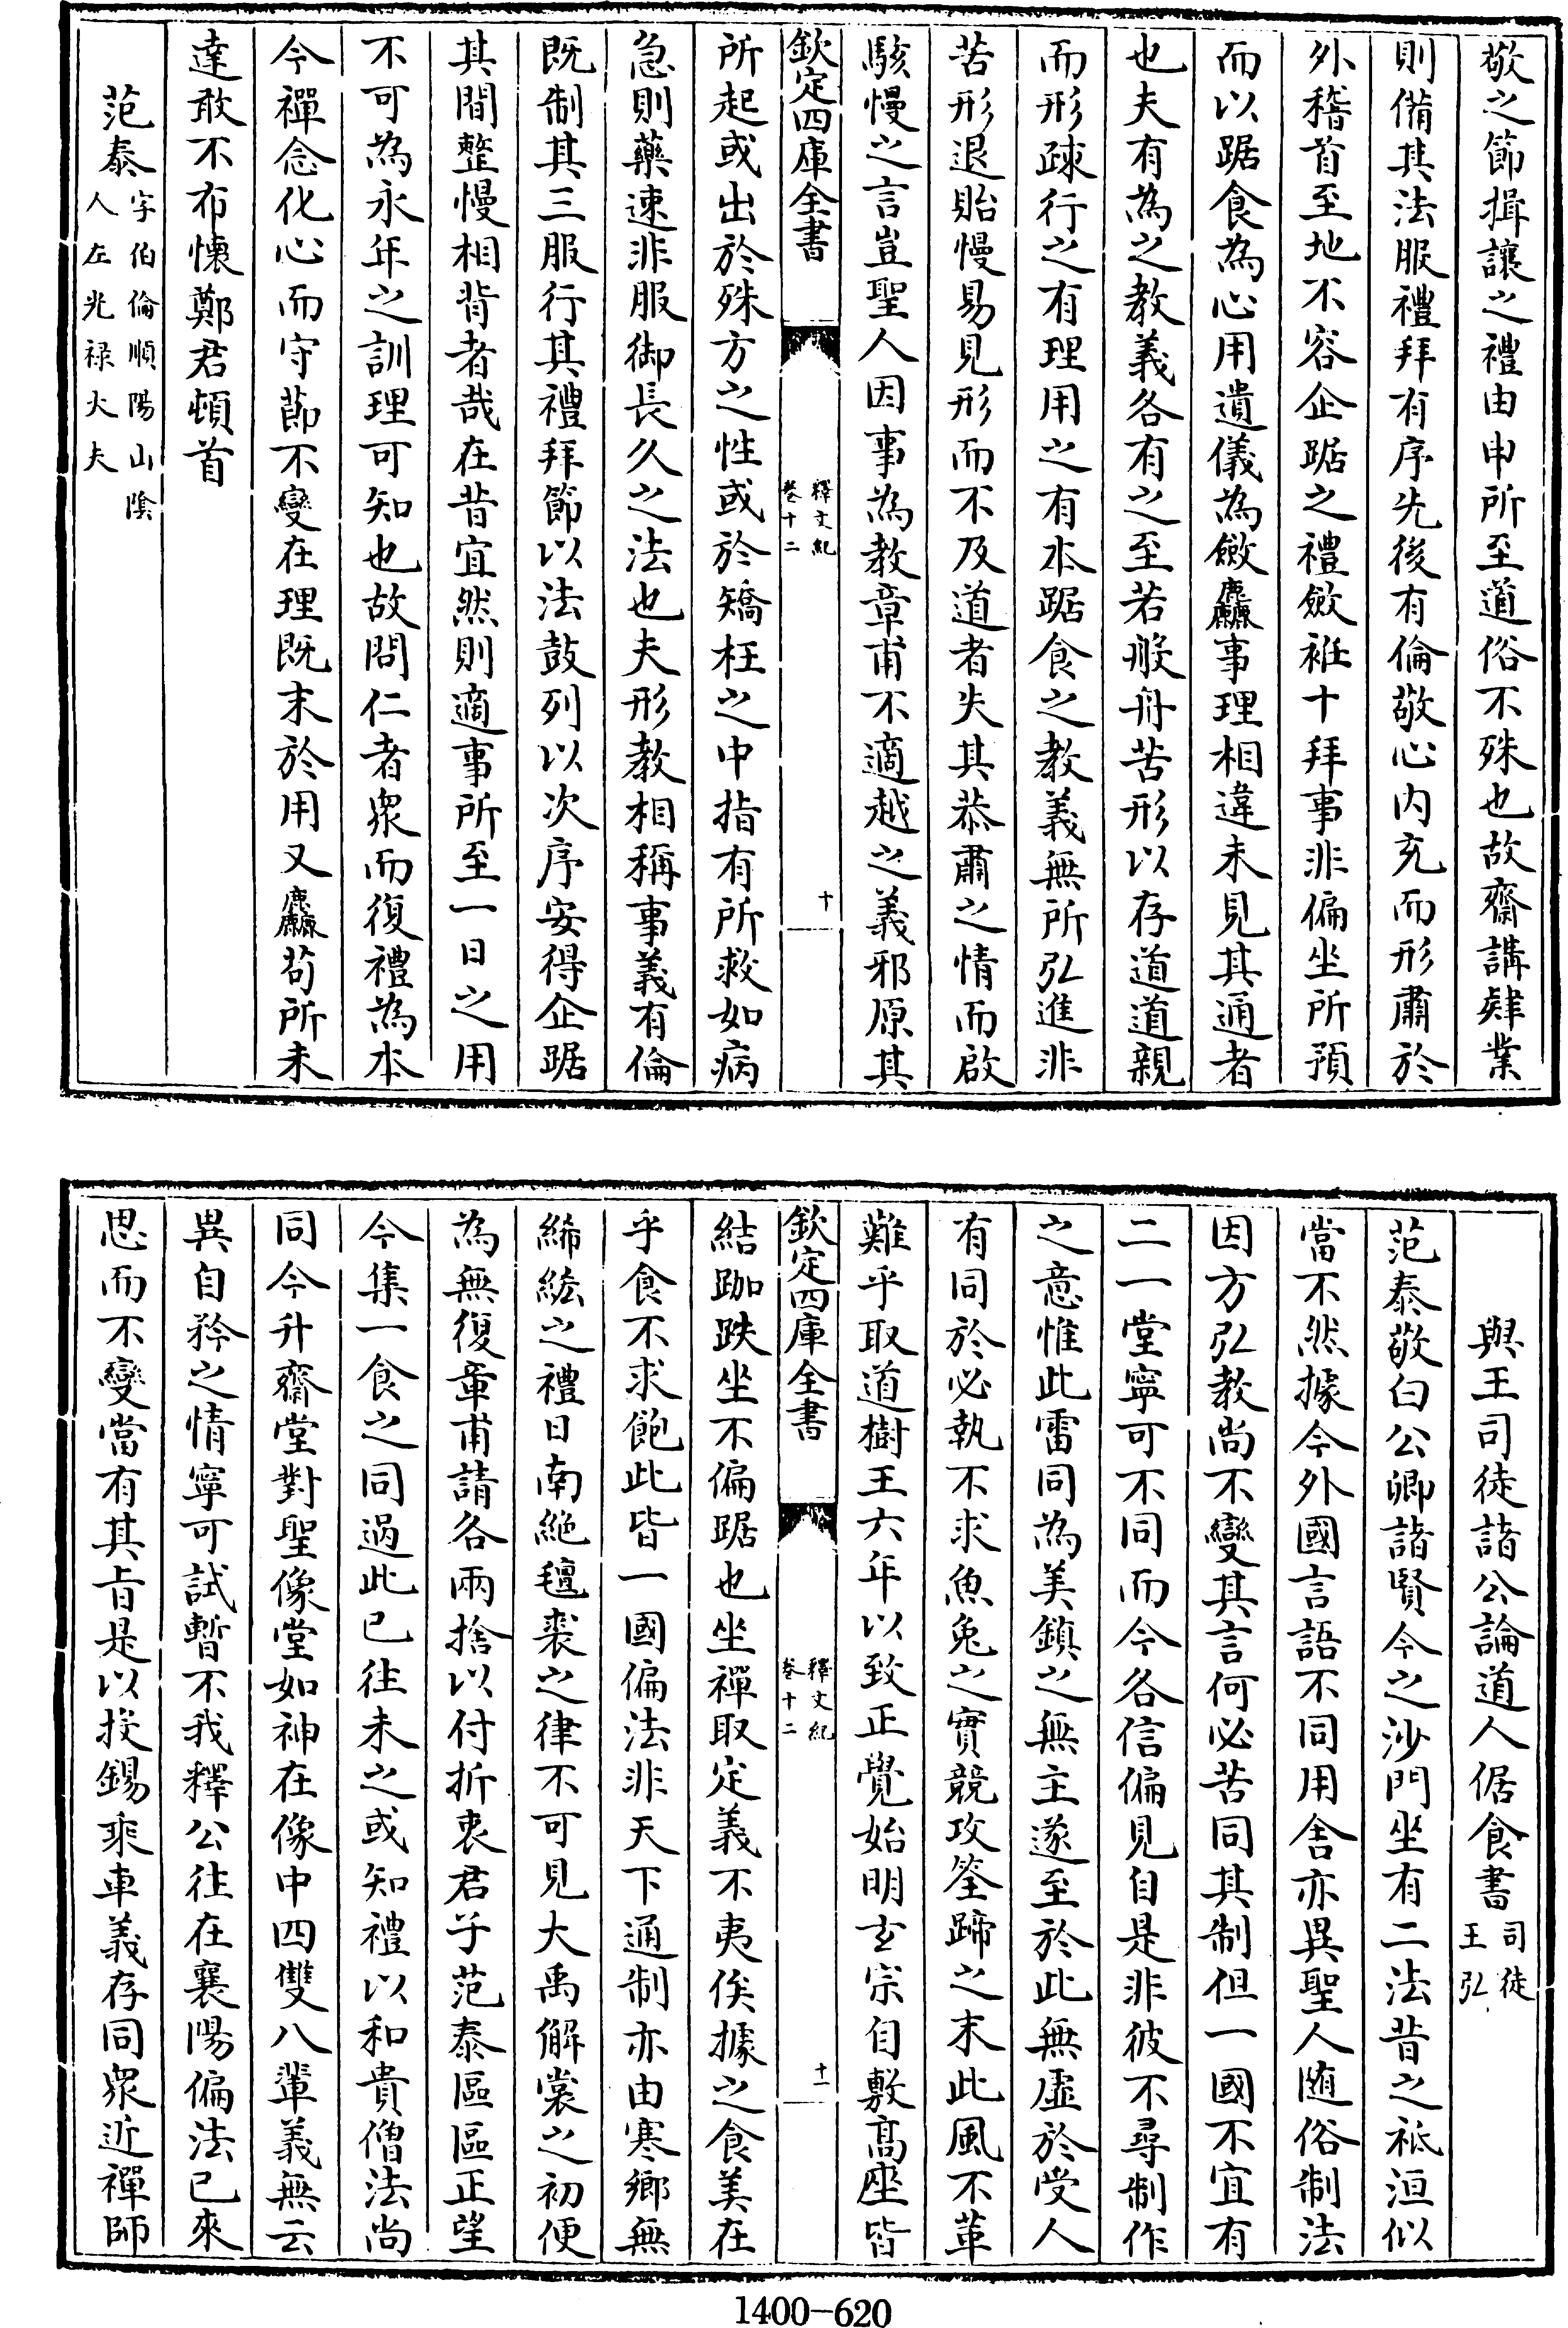 敬之節揖讓之禮由申所至道俗不殊也故齋講肄業
則備其法服禮拜有序先後有倫敬心内充而形肅於
外稽首至地不容企踞之禮斂袵十拜事非偏坐所預
而以踞食為心用遺儀為斂麤事理相違未見其通者
也夫有為之教義各有之至若般舟苦形以存道道親
而形疎行之有理用之有本踞食之教義無所弘進非
苦形退貽慢易見形而不及道者失其恭肅之情而啟
駭慢之言豈聖人因事為教章甫不適越之義邪原其
欽定四庫全書
釋文紀
卷十二
十
所起或出於殊方之性或於矯枉之中指有所救如病
急則藥速非服御長久之法也夫形教相稱事義有倫
既制其三服行其禮拜節以法鼓列以次序安得企踞
其間整慢相背者哉在昔宜然則適事所至一日之用
不可為永年之訓理可知也故問仁者衆而復禮為本
今禪念化心而守莭不變在理既末於用又麤茍所未
達敢不布懷鄭君頓首
范泰字伯倫順陽山陰
人左光祿大夫
與王司徒諸公論道人倨食書司徒
王弘
范泰敬白公卿諸賢今之沙門坐有二法昔之祗洹似
當不然據今外國言語不同用舍亦異聖人隨俗制法
因方弘教尚不變其言何必苦同其制但一國不宜有
二一堂寧可不同而今各信偏見自是非彼不尋制作
之意惟此雷同為美鎮之無主遂至於此無虛於受人
有同於必執不求魚兔之實競攻筌蹄之末此風不革
難乎取道樹王六年以致正覺始明玄宗自敷高座皆
欽定四庫全書
釋文紀
卷十二
十一
結跏趺坐不偏踞也坐禪取定義不夷俟據之食美在
乎食不求飽此皆一國偏法非天下通制亦由寒鄉無
絺綌之禮日南絶氊裘之律不可見大禹解裳之初便
為無復章甫請各兩捨以付折衷君子范泰區區正望
今集一食之同過此已往未之或知禮以和貴僧法尚
同今升齋堂對聖像堂如神在像中四雙八輩義無云
異自矜之情寧可試暫不我釋公往在襄陽偏法已來
思而不變當有其㫖是以投錫乘車義存同衆近禪師
1400-620